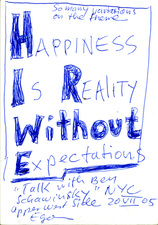 So many variations
on the theme
HAPPINESS
IS REALITY
Without
Expectations
"Talk with Ben
Schawinsky" NYC
upper west side 20 VII 05
Egon